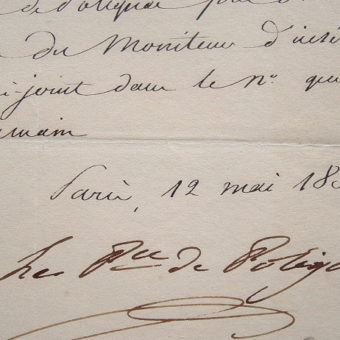 de Polignac
du Moniteur d'insé
i-joint dans le n° qu
emain
Paris, 12 mai 18
Le Pce de Polig